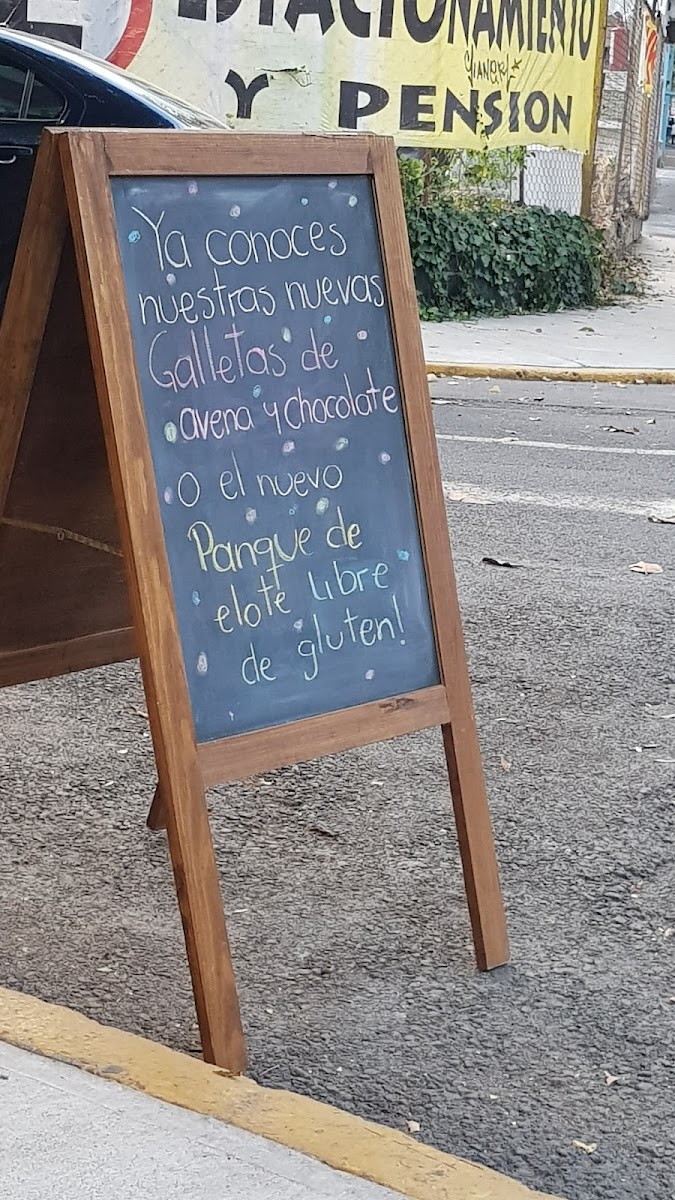 ESTACIONAMIENTO
Y PENSION
Ya conoces
nuestras nuevas
Galletas de
avena y chocolate
o el nuevo
Panque de
elote Libre
de gluten!